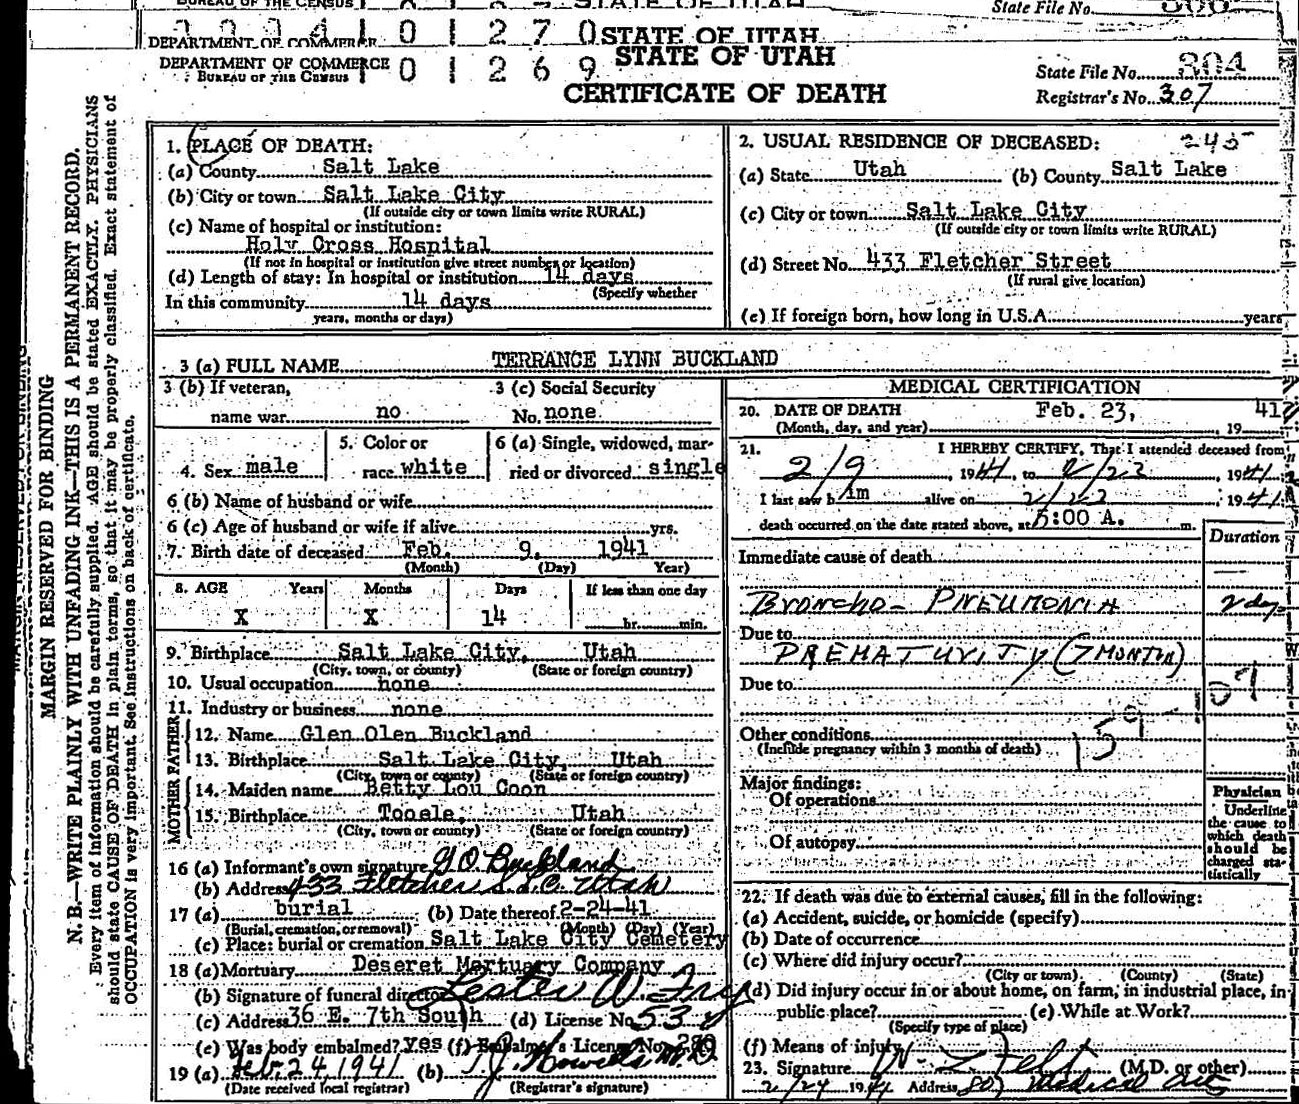 BUREAU OF THE CENSUS STATE OF UTAH
State File No. 306
DEPARTMENT OF COMMERCE 0 1 2 7 0 STATE OF UTAH
DEPARTMENT OF COMMERCE STATE OF UTAH
BUREAU OF THE CENSUS 0 1 2 6 9
CERTIFICATE OF DEATH
State File No. 304
Registrar's No. 307
MARGIN RESERVED FOR BINDING
N. B.—WRITE PLAINLY WITH UNFADING INK—THIS IS A PERMANENT RECORD.
Every item of information should be carefully supplied. AGE should be stated EXACTLY. PHYSICIANS
should state CAUSE OF DEATH in plain terms, so that it may be properly classified. Exact statement of
OCCUPATION is very important. See instructions on back of certificate.
1. PLACE OF DEATH:
(a) County Salt Lake
(b) City or town Salt Lake City
(If outside city or town limits write RURAL)
(c) Name of hospital or institution:
Holy Cross Hospital
(If not in hospital or institution give street number or location)
(d) Length of stay: In hospital or institution 14 days
(Specify whether
In this community 14 days
years, months or days)
2. USUAL RESIDENCE OF DECEASED: 245
(a) State Utah (b) County Salt Lake
(c) City or town Salt Lake City
(If outside city or town limits write RURAL)
(d) Street No. 433 Fletcher Street
(If rural give location)
(e) If foreign born, how long in U.S.A. years
3 (a) FULL NAME TERRANCE LYNN BUCKLAND
3 (b) If veteran, 3 (c) Social Security
name war no No. none
4. Sex male 5. Color or race white 6 (a) Single, widowed, married or divorced single
6 (b) Name of husband or wife
6 (c) Age of husband or wife if alive yrs.
7. Birth date of deceased Feb. 9, 1941
(Month) (Day) Year)
8. AGE Years Months Days If less than one day
X X 14 hr. min.
9. Birthplace Salt Lake City, Utah
(City, town, or county) (State or foreign country)
10. Usual occupation none
11. Industry or business none
FATHER
12. Name Glen Olen Buckland
13. Birthplace Salt Lake City, Utah
(City, town or county) (State or foreign country)
MOTHER
14. Maiden name Betty Lou Coon
15. Birthplace Tooele, Utah
(City, town or county) (State or foreign country)
16 (a) Informant's own signature G O Buckland
(b) Address 433 Fletcher S.L.C. Utah
17 (a) burial (b) Date thereof 2-24-41
(Burial, cremation, or removal) (Month) (Day) (Year)
(c) Place: burial or cremation Salt Lake City Cemetery
18 (a) Mortuary Deseret Mortuary Company
(b) Signature of funeral director Lester W. Fry
(c) Address 36 E. 7th South (d) License No. 53
(e) Was body embalmed? Yes (f) Embalmer's License No.
19 (a) Feb. 24 1941 (b) Howells M.D.
(Date received local registrar) (Registrar's signature)
MEDICAL CERTIFICATION
20. DATE OF DEATH Feb. 23, 41
(Month, day, and year) , 19
21. I HEREBY CERTIFY, That I attended deceased from
2/9, 1941, to 2/23, 1941
I last saw him alive on 1941
death occurred on the date stated above, at 5:00 A. m.
Duration
Immediate cause of death
BRONCHO-PNEUMONIA 2 day
Due to
PREMATURITY (7 MONTH)
Due to
159 07
Other conditions
(Include pregnancy within 3 months of death)
Major findings:
Of operations
Of autopsy
Physician
Underline
the cause to
which death
should be
charged sta-
tistically
22. If death was due to external causes, fill in the following:
(a) Accident, suicide, or homicide (specify)
(b) Date of occurrence
(c) Where did injury occur?
(City or town) (County) (State)
(d) Did injury occur in or about home, on farm, in industrial place, in
public place? (e) While at Work?
(Specify type of place)
(f) Means of injury
23. Signature (M.D. or other)
2/24 1941 Address Medical Arts